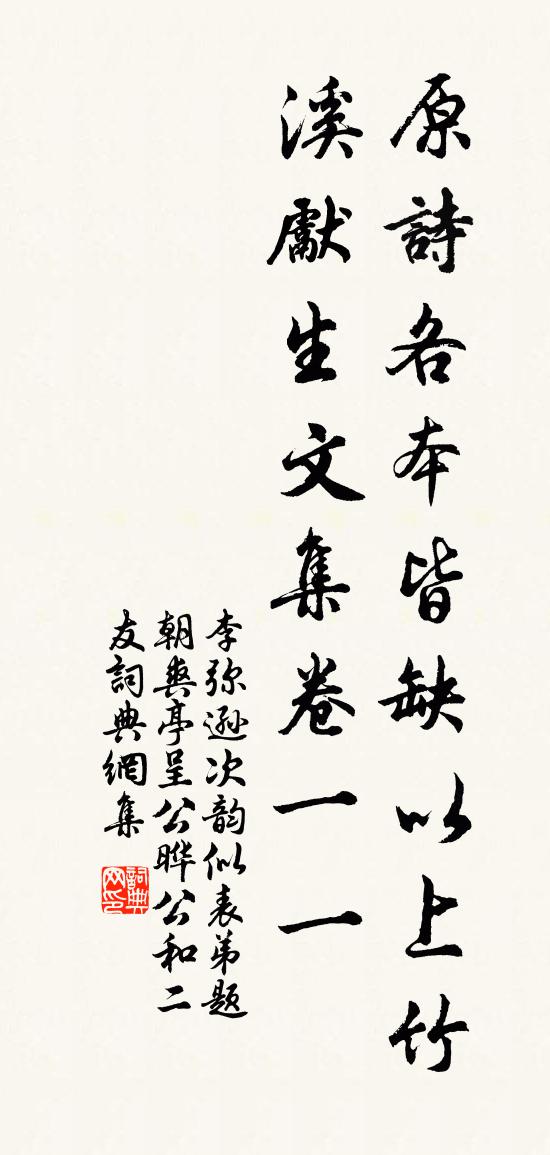 原詩各本皆缺以上竹
溪獻生文集卷一一
李弥遜次韵似表弟题
朝爽亭呈公晔公和二
友詞典網集
詞典
网印